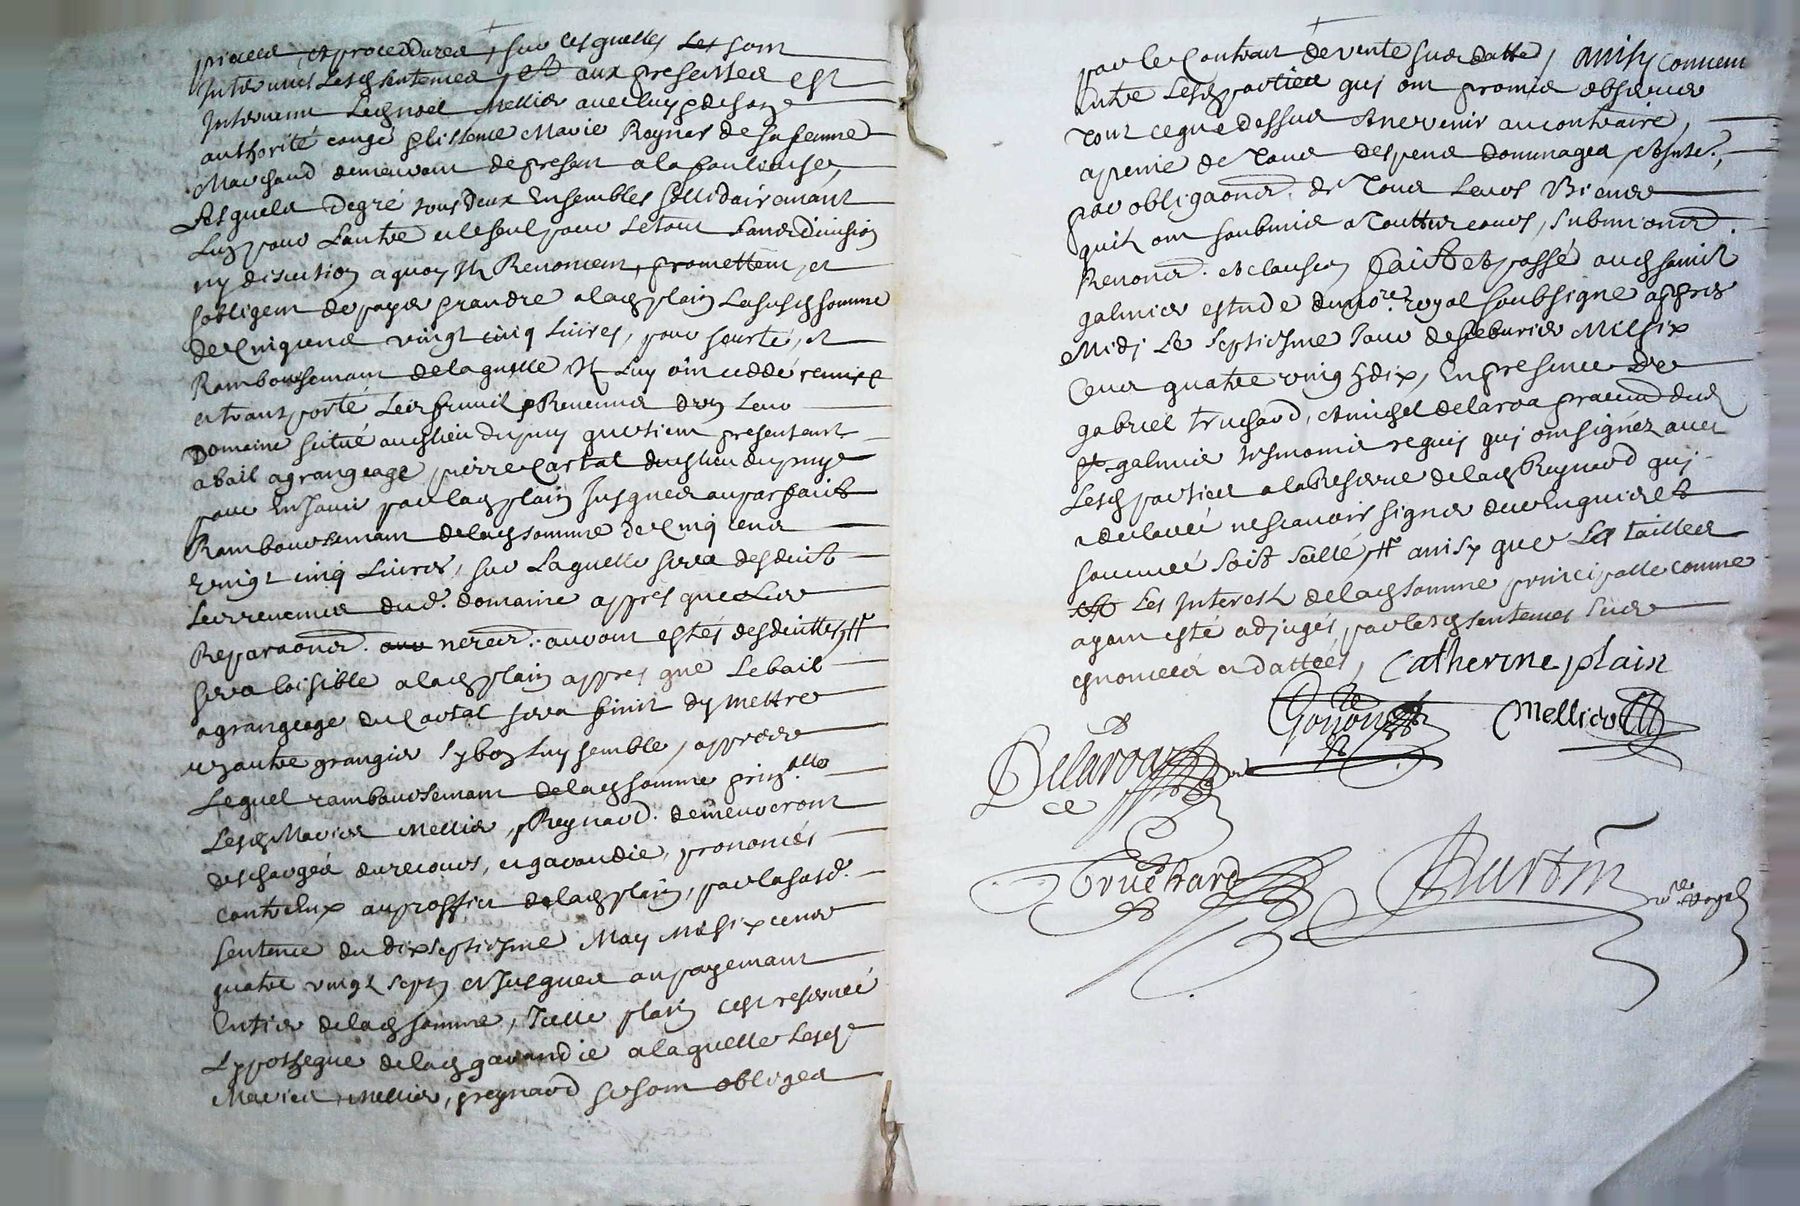 pieces, et procedures, sur lesquelles les sont
Intervenus lesd sentences, et aux presentes est
Intervenu led noel Mellier avec luy
authorité congé licence Marie Reynard sa femme
Marchand demeurant de present a la
Lesquels de gré tous deux Ensembles sollidairemant
Luy pour Lautre et le seul pour le tout sans division
ny discution a quoy Ils Renoncent, promettent, et
sobligent de payer prandre a lad plain La susd somme
de Cinq cens vingt cinq livres, pour seurté, et
Ramboursemant de laquelle Ils Luy ont ceddé remis
et transporté Les fruits Revenus dun Leur
Domaine scitué aud lieu du puy que tient presentemt
a bail a grangeage pierre Cartal dud lieu du puy
pour En Jouir par lad plain Jusques au parfaict
Ramboursemant de lad somme de Cinq cens
vingt cinq Livres, sur Laquelle sera desduit
Les revenus dud. domaine appres que Les
Reparaons. necer. auront estés desduittes,
sera loisible a lad plain appres que Le bail
a grangeage du Cartal sera finit dy Mettre
un autre granger sy bon Luy semble, appres
Lequel ramboursemant de lad somme prin.alle
Lesd Maries Mellier, Reynard. demeureront
deschargés du recours, et garandie, prononcés
contre Eux au proffict de lad plain, par la susd.
sentence du dix septiesme May Mil six cens
quatre vingt sept et Jusques au payemant
Entier de lad somme, Icelle plain cest reservée
Lypotheque de lad garandie a laquelle Lesd
Maries Mellier, preynard se sont obliges
par le Contrat de vente sus datté, ainsy convenu
Entre Lesd parties quy ont promis observer
tout ce que dessus et ne venir au contraire,
a peine de tous despens dommages,
par obligaons. de tous Leurs Biens
quils ont soubmis a touttes cours, submions.
Renons. et clauses, faict et passé aud sainct
galmier estude du no.re royal soubsigné appres
Midi Le septiesme Jour de febvrier Mil six
Cens quatre ving dix, En presence de
gabriel truchard, et michel delaroa pratt dud
st galmier tesmoins requis quy ont signés avec
Lesd parties a la Reserve de lad Reynard quy
a declaré ne scavoir signer de ce Enquise et
sommée soit scellé, ainsy que Les tailles
Les Interest de lad somme principalle comme
ayant esté adjugés par lesd sentences sus
enoncées et dattées, Catherine plain
Gonon Mellier
Delaroa
Truchard Burtin no.re Royal